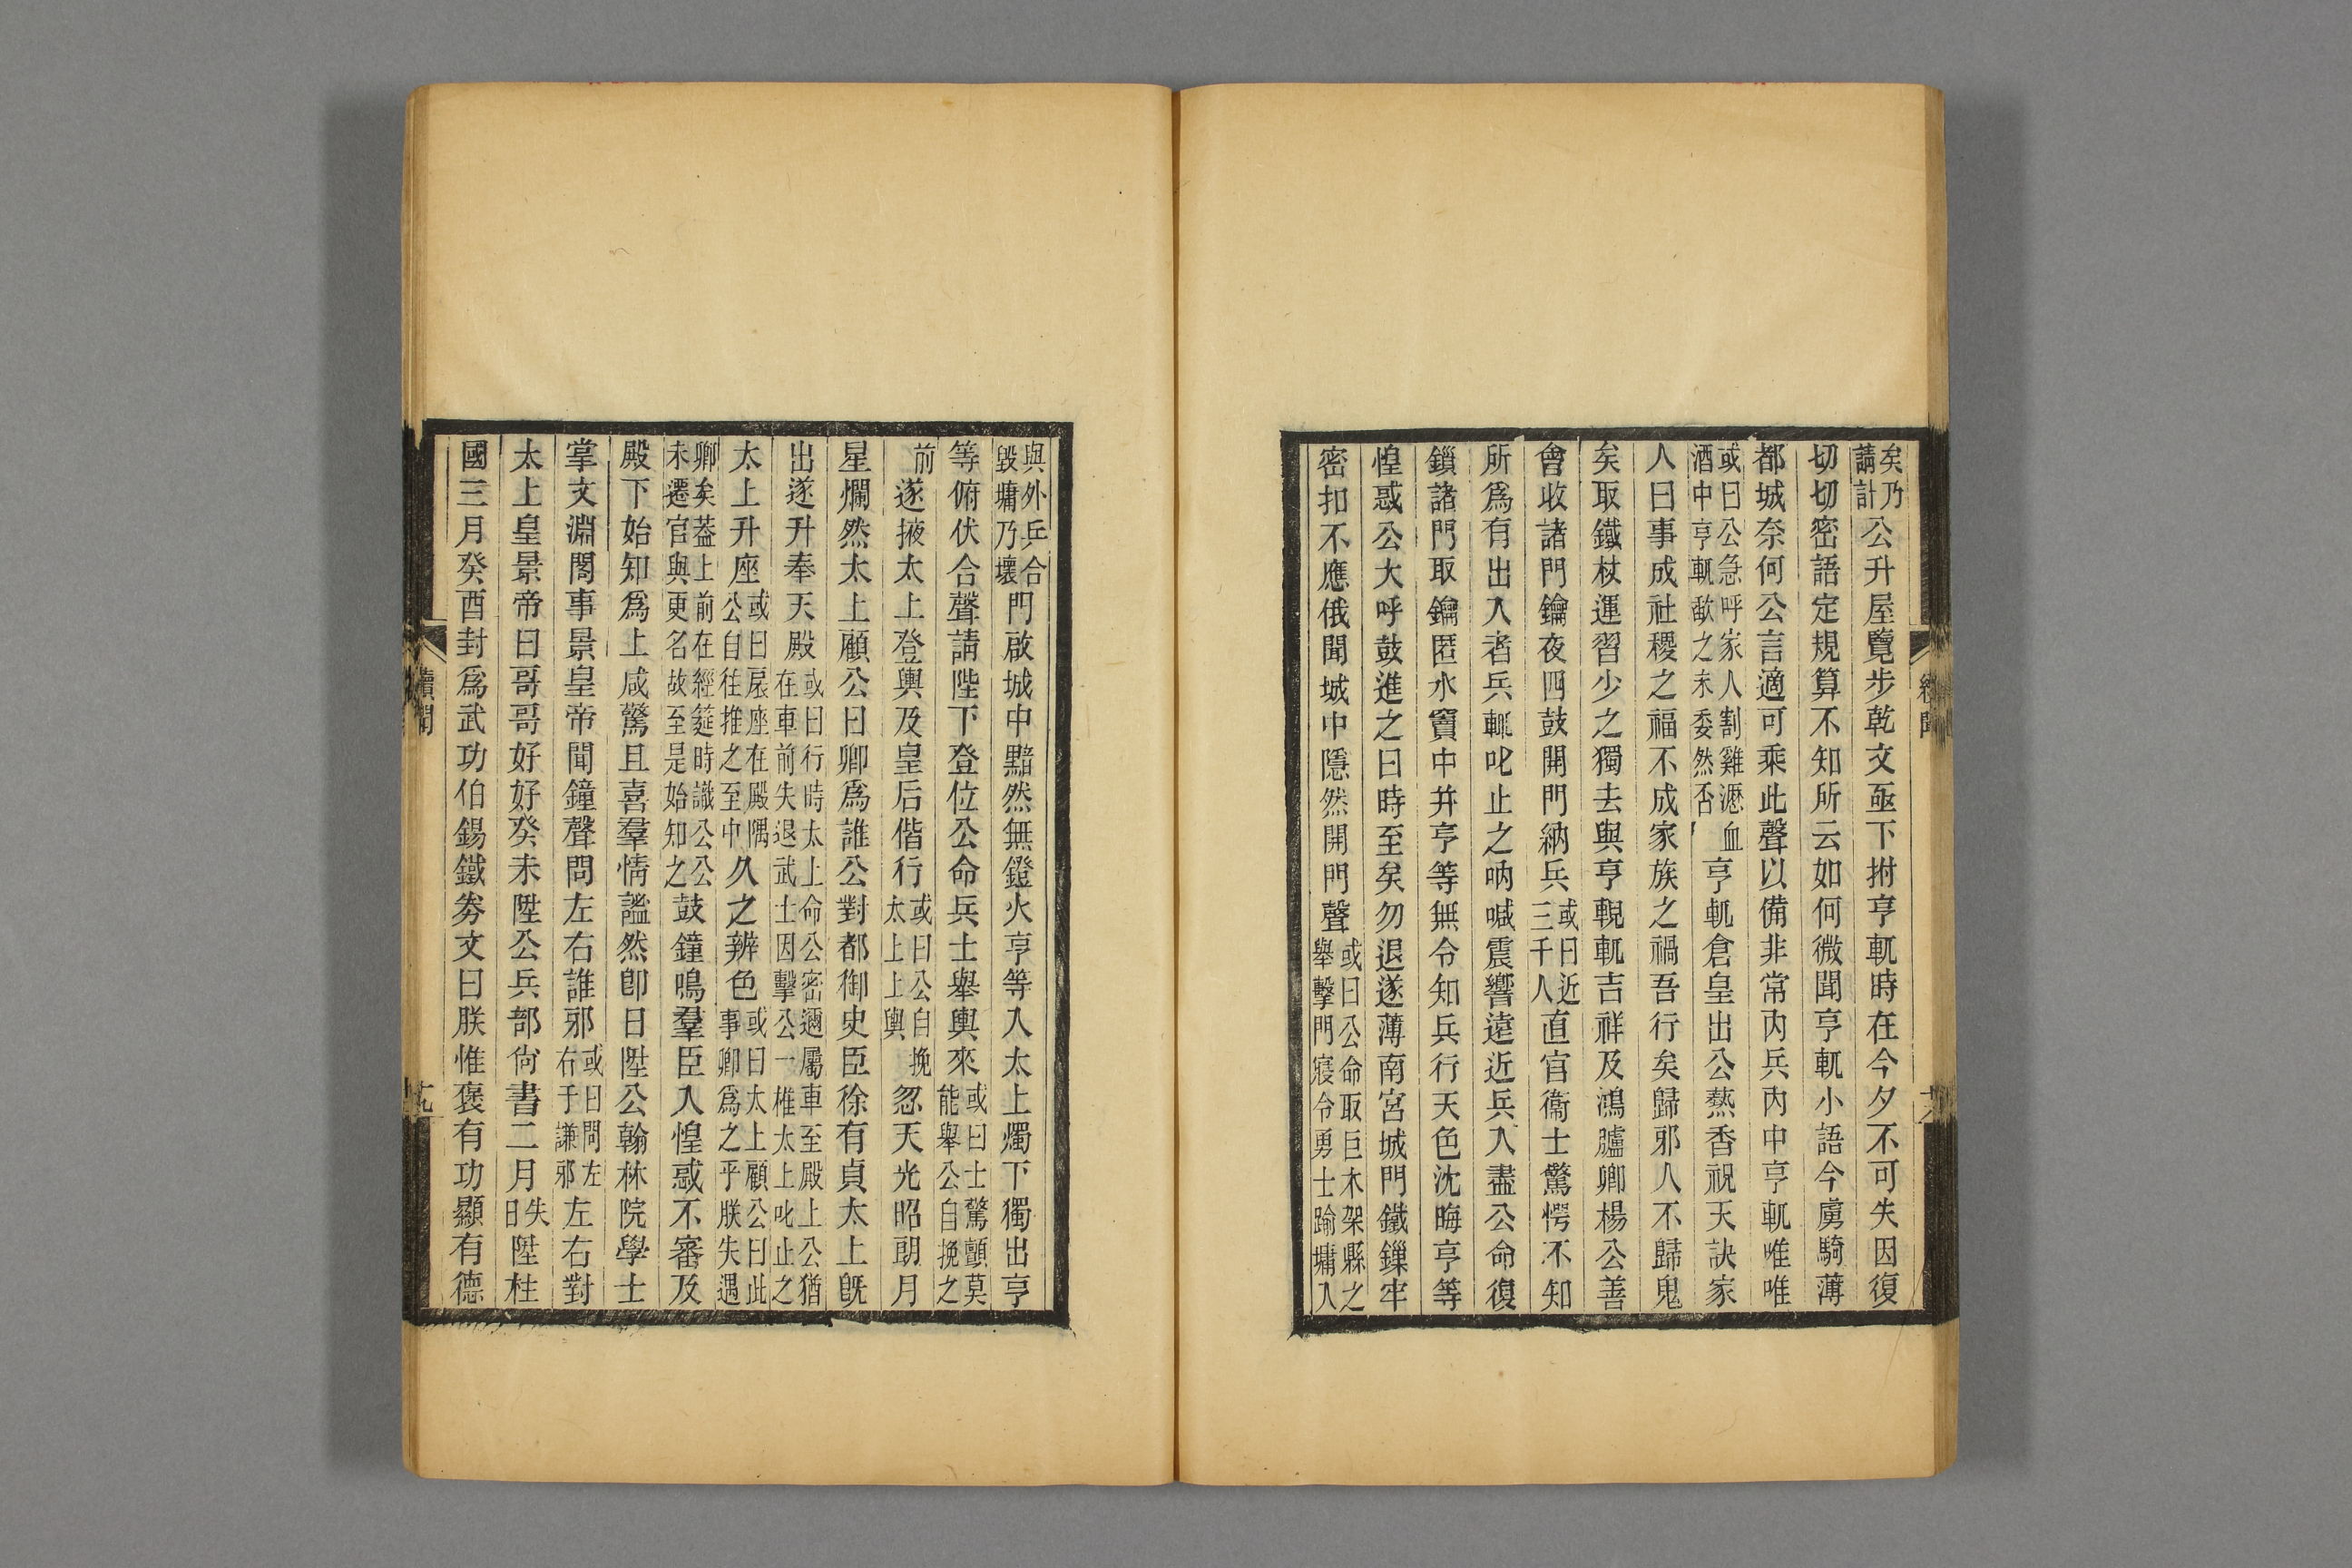 矣乃請計公升屋覽步乾文亟下拊亨軏時在今夕不可失因復
切切密語定規算不知所云如何微聞亨軏小語今虜騎薄
都城奈何公言適可乘此聲以備非常內兵內中亨軏唯唯
或曰公急呼家人割雞瀝血酒中亨軏歃之未委然否亨軏倉皇出公爇香祝天訣家
人曰事成社稷之福不成家族之禍吾行矣歸邪人不歸鬼
矣取鐵杖運習少之獨去與亨輗軏吉祥及鴻臚卿楊公善
會收諸門鑰夜四鼓開門納兵或曰近三千人直官衞士驚愕不知
所爲有出入者兵輒叱止之吶喊震響遠近兵入盡公命復
鎖諸門取鑰匿水竇中幷亨等無令知兵行天色沈晦亨等
惶惑公大呼鼓進之曰時至矣勿退遂薄南宮城門鐵鏁牢
密扣不應俄聞城中隱然開門聲或曰公命取巨木架縣之舉擊門寢令勇士踰墉入
與外兵合毀墉乃壞門啟城中黯然無鐙火亨等入太上燭下獨出亨
等俯伏合聲請陛下登位公命兵士舉輿來或曰士驚顫莫能舉公自挽之
前遂掖太上登輿及皇后偕行或曰公自挽太上上輿忽天光昭朗月
星爛然太上顧公曰卿爲誰公對都御史臣徐有貞太上旣
出遂升奉天殿或曰行時太上命公密邇屬車至殿上公猶在車前失退武士因擊公一椎太上叱止之
太上升座或曰扆座在殿隅公自往推之至中久之辨色或曰太上顧公曰此事卿爲之乎朕失遇
卿矣葢上前在經筵時識公公未遷官與更名故至是始知之鼓鐘鳴羣臣入惶惑不審及
殿下始知爲上咸驚且喜羣情謐然卽日陞公翰林院學士
掌文淵閣事景皇帝聞鐘聲問左右誰邪或曰問左右于謙邪左右對
太上皇景帝曰哥哥好好癸未陞公兵部尙書二月失日陞柱
國三月癸酉封爲武功伯錫鐵券文曰朕惟褒有功顯有德
續聞
十九